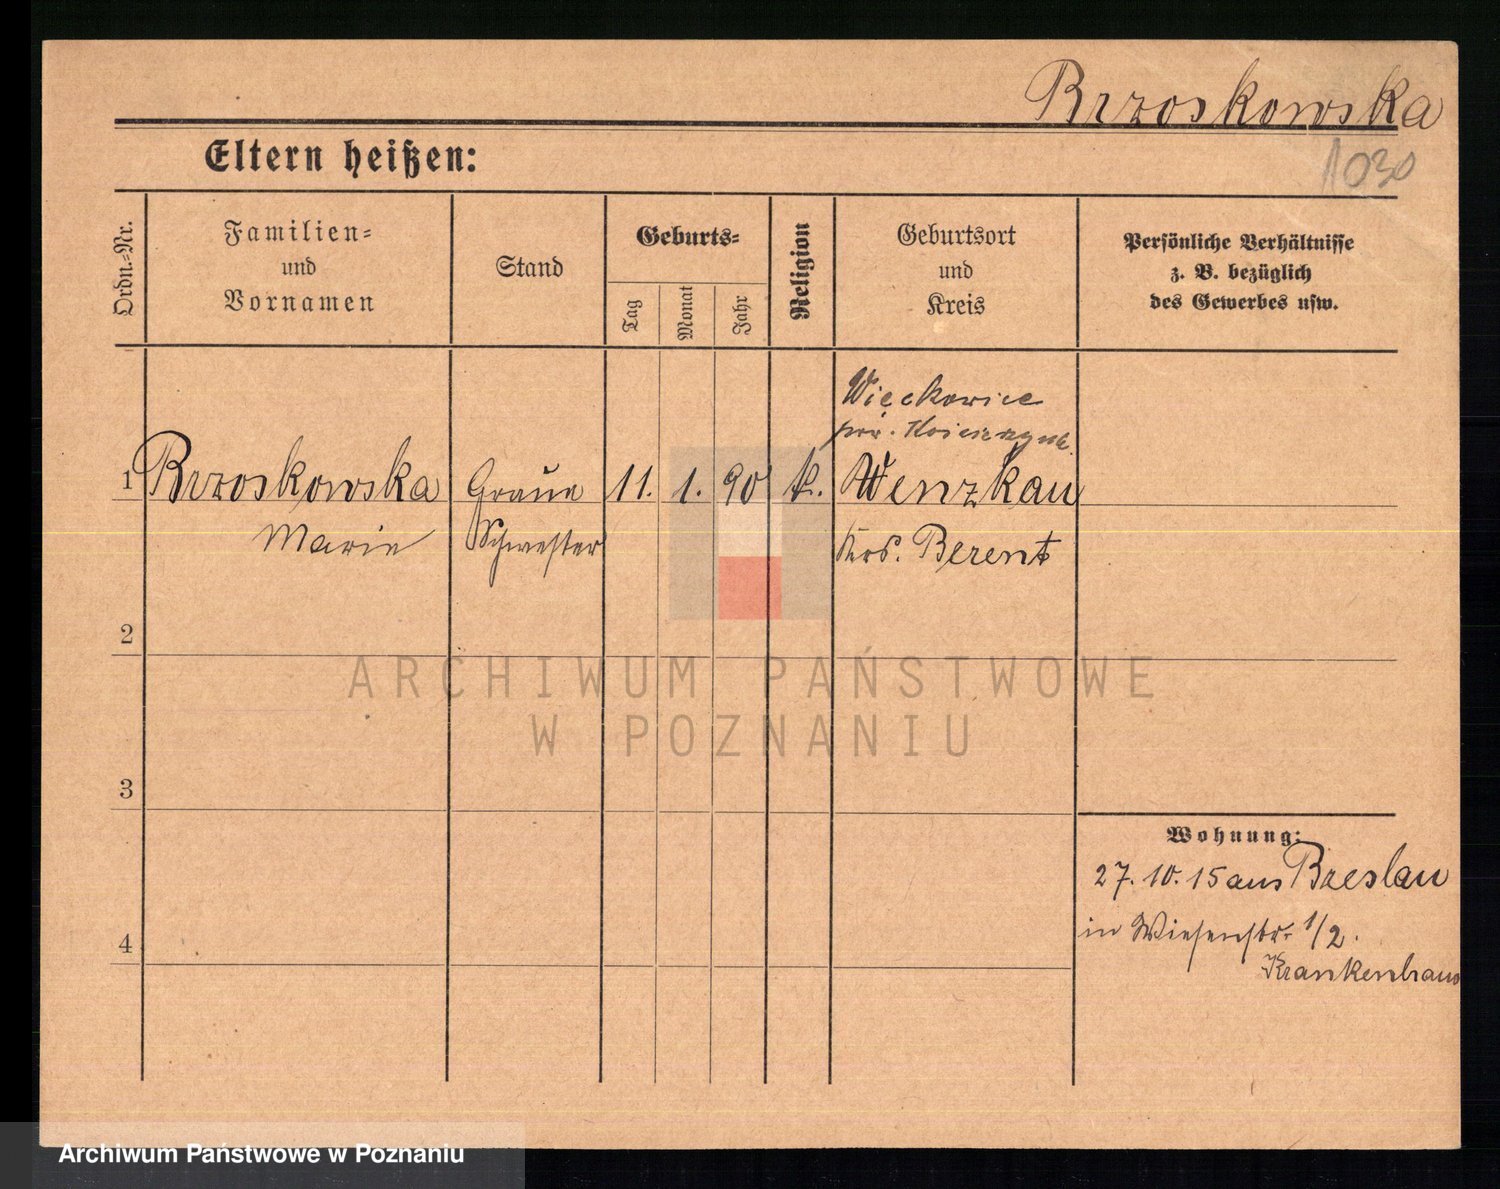 Brzoskowska
1030
Eltern heißen:
Ordn.-Nr.
Familien- und Vornamen
Stand
Geburts-
Tag
Monat
Jahr
Religion
Geburtsort und Kreis
Persönliche Verhältnisse
z. B. bezüglich
des Gewerbes usw.
Więckowice
pow.
1 Brzoskowska Graue 11. 1. 90 k. Wenzkau
Marie Schwester Krs. Berent
2
ARCHIWUM PAŃSTWOWE
W POZNANIU
3
Wohnung:
27. 10. 15 aus Breslau
4
in Wiesenstr. 1/2.
Krankenhaus
Archiwum Państwowe w Poznaniu